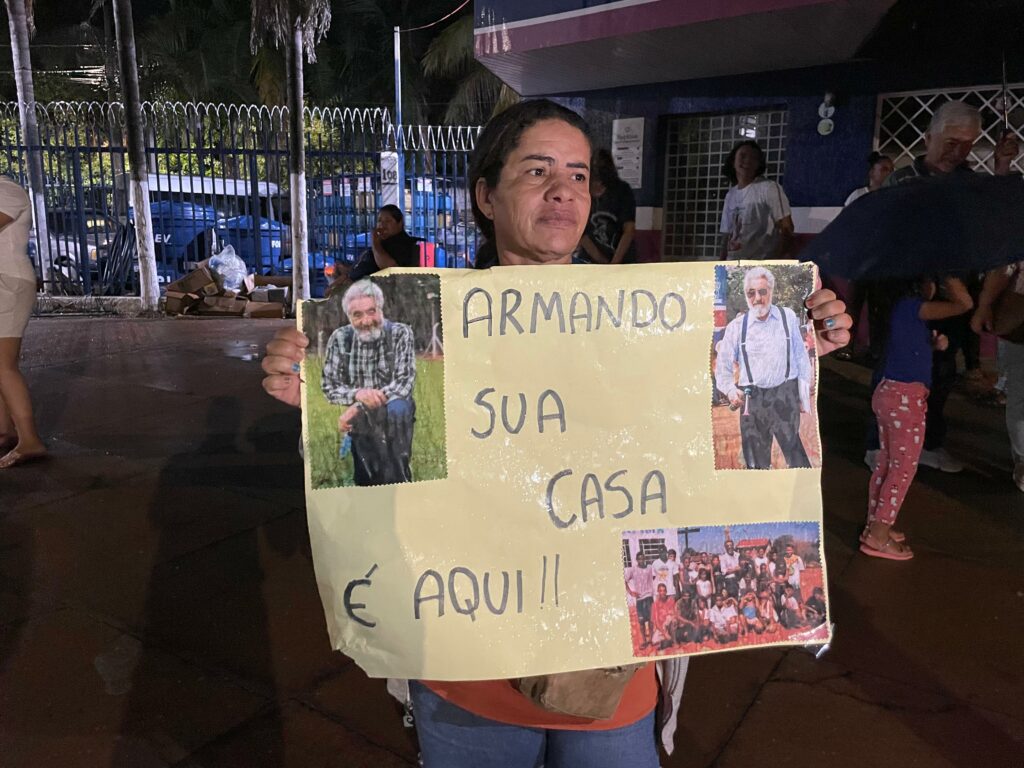 ARMANDO
SUA
CASA
É AQUI!!
108